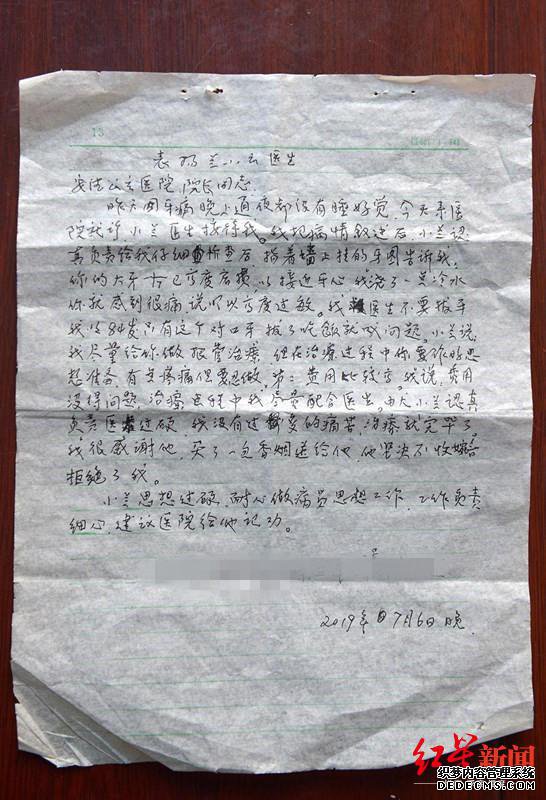 13
表扬兰小云医生
安法公立医院,院长同志。
昨天因牙病晚上通夜都没有睡好觉,今天来医
院就诊,小兰医生接待我。我把病情叙述后,小兰认
真负责给我仔细检查后,指着墙上挂的牙图告诉我,
你的大牙已高度磨损以接近牙心,我浇了一点冷水
你就感到很痛说明以高度过敏。我医生不要拔牙
我以84岁只有这个对口牙拔了吃饭就成问题。小兰说,
我尽量给你做根管治療,但在治療过程中你要作好思
想准备,有点疼痛但要忍做。第二费用比较高。我说,费用
没得问题,治療过程中我尽量配合医生。由大兰认真
负责医过硬,我没有过多的痛苦,治療就完毕了
我很感谢他,买了一包香烟送给他,他坚决不收
拒绝了我。
小兰思想过硬,耐心做病员思想工作,工作负责
细心,建议医院给他记功。
2019年7月6日晚.
红星新闻
织梦内容管理系统
DEDECMS.COM